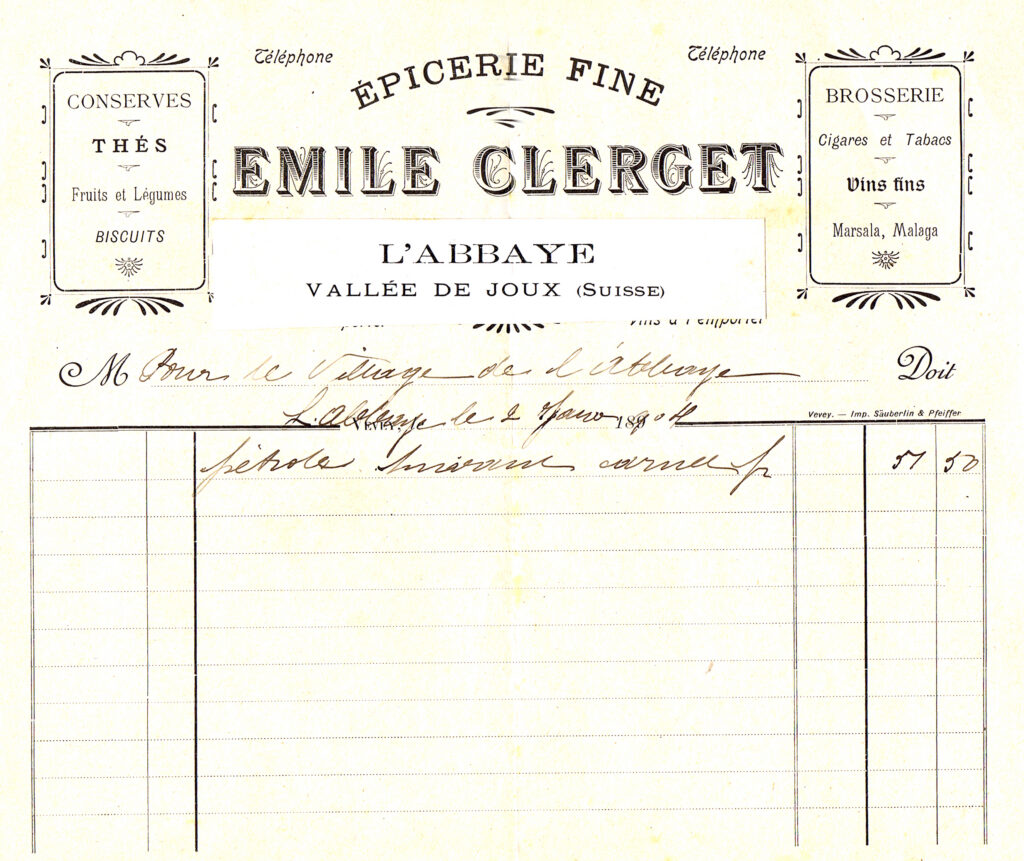 Téléphone
Téléphone
ÉPICERIE FINE
EMILE CLERGET
CONSERVES
THÉS
Fruits et Légumes
BISCUITS
BROSSERIE
Cigares et Tabacs
Vins fins
Marsala, Malaga
L'ABBAYE
VALLÉE DE JOUX (SUISSE)
Vins à l'emporter
M Pour le Village de l'Abbaye Doit
L'Abbaye le 2 Janv 1904
Vevey. — Imp. Säuberlin & Pfeiffer
pétrole suivant carnet fr 51 50